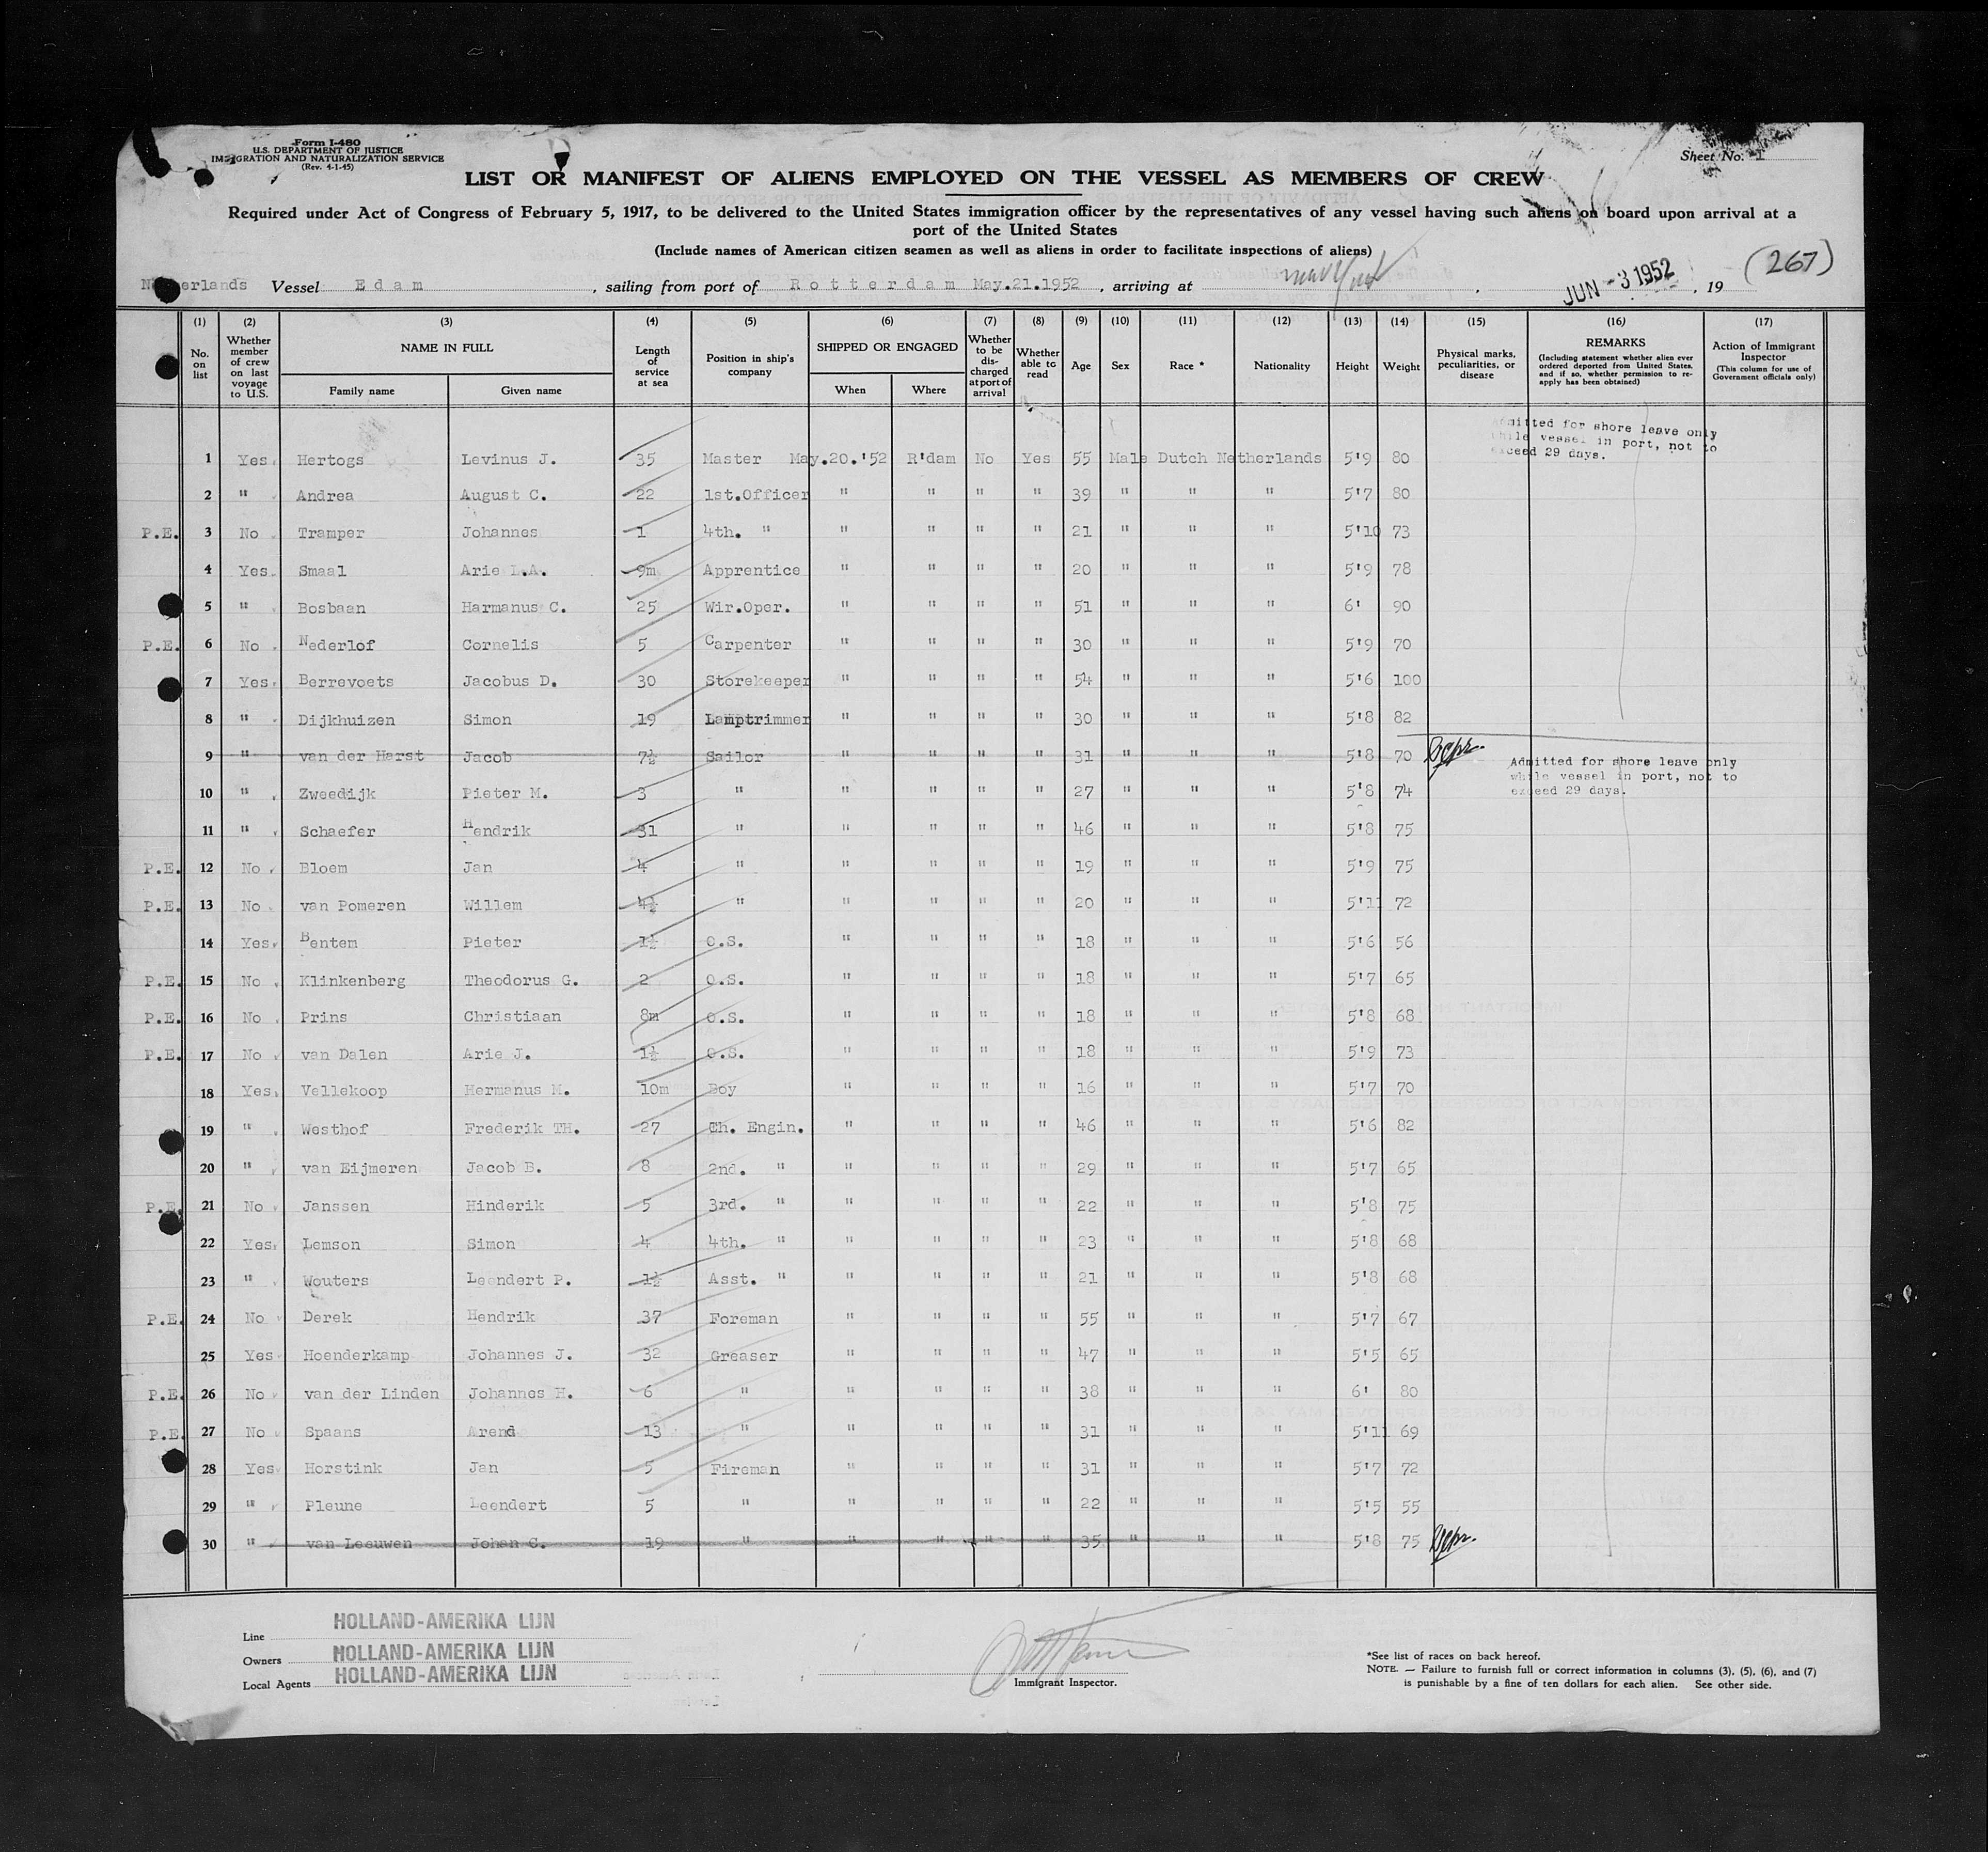 Form I-480
U.S. DEPARTMENT OF JUSTICE
IMMIGRATION AND NATURALIZATION SERVICE
(Rev. 4-1-45)
Sheet No. 1
LIST OR MANIFEST OF ALIENS EMPLOYED ON THE VESSEL AS MEMBERS OF CREW
Required under Act of Congress of February 5, 1917, to be delivered to the United States immigration officer by the representatives of any vessel having such aliens on board upon arrival at a
port of the United States
(Include names of American citizen seamen as well as aliens in order to facilitate inspections of aliens)
(267)
Netherlands Vessel Edam, sailing from port of Rotterdam May.21.1952, arriving at , JUN -3 1952, 19
(1) (2) (3) (4) (5) (6) (7) (8) (9) (10) (11) (12) (13) (14) (15) (16) (17)
No. on list
Whether member of crew on last voyage to U.S.
NAME IN FULL
Family name Given name
Length of service at sea
Position in ship's company
SHIPPED OR ENGAGED
When Where
Whether to be discharged at port of arrival
Whether able to read
Age Sex Race * Nationality Height Weight
Physical marks, peculiarities, or disease
REMARKS
(Including statement whether alien ever ordered deported from United States, and if so, whether permission to re-apply has been obtained)
Action of Immigrant Inspector
(This column for use of Government officials only)
Admitted for shore leave only
while vessel in port, not to
exceed 29 days.
1 Yes Hertogs Levinus J. 35 Master May.20.'52 R'dam No Yes 55 Male Dutch Netherlands 5'9 80
2 " Andrea August C. 22 1st.Officer " " " " 39 " " " 5'7 80
P.E. 3 No Tramper Johannes 1 4th. " " " " " 21 " " " 5'10 73
4 Yes Smaal Arie L.A. 9m Apprentice " " " " 20 " " " 5'9 78
5 " Bosbaan Harmanus C. 25 Wir.Oper. " " " " 51 " " " 6' 90
P.E. 6 No Nederlof Cornelis 5 Carpenter " " " " 30 " " " 5'9 70
7 Yes Berrevoets Jacobus D. 30 Storekeeper " " " " 54 " " " 5'6 100
8 " Dijkhuizen Simon 19 Lamptrimmer " " " " 30 " " " 5'8 82
9 " van der Harst Jacob 7½ Sailor " " " " 31 " " " 5'8 70
Admitted for shore leave only
while vessel in port, not to
exceed 29 days.
10 " Zweedijk Pieter M. 3 " " " " " 27 " " " 5'8 74
11 " Schaefer Hendrik 31 " " " " " 46 " " " 5'8 75
P.E. 12 No Bloem Jan 4 " " " " " 19 " " " 5'9 75
P.E. 13 No van Pomeren Willem 4½ " " " " " 20 " " " 5'11 72
14 Yes Bentem Pieter 1½ O.S. " " " " 18 " " " 5'6 56
P.E. 15 No Klinkenberg Theodorus G. 2 O.S. " " " " 18 " " " 5'7 65
P.E. 16 No Prins Christiaan 8m O.S. " " " " 18 " " " 5'8 68
P.E. 17 No van Dalen Arie J. 1½ O.S. " " " " 18 " " " 5'9 73
18 Yes Vellekoop Hermanus M. 10m Boy " " " " 16 " " " 5'7 70
19 " Westhof Frederik TH. 27 Ch. Engin. " " " " 46 " " " 5'6 82
20 " van Eijmeren Jacob B. 8 2nd. " " " " " 29 " " " 5'7 65
P.E. 21 No Janssen Hinderik 5 3rd. " " " " " 22 " " " 5'8 75
22 Yes Lemson Simon 4 4th. " " " " " 23 " " " 5'8 68
23 " Wouters Leendert P. 1½ Asst. " " " " " 21 " " " 5'8 68
P.E. 24 No Derek Hendrik 37 Foreman " " " " 55 " " " 5'7 67
25 Yes Hoenderkamp Johannes J. 32 Greaser " " " " 47 " " " 5'5 65
P.E. 26 No van der Linden Johannes H. 6 " " " " " 38 " " " 6' 80
P.E. 27 No Spaans Arend 13 " " " " " 31 " " " 5'11 69
28 Yes Horstink Jan 5 Fireman " " " " 31 " " " 5'7 72
29 " Pleune Leendert 5 " " " " " 22 " " " 5'5 55
30 " van Leeuwen Johan C. 19 " " " " " 35 " " " 5'8 75
Line HOLLAND-AMERIKA LIJN
Owners HOLLAND-AMERIKA LIJN
Local Agents HOLLAND-AMERIKA LIJN
Immigrant Inspector.
*See list of races on back hereof.
NOTE. — Failure to furnish full or correct information in columns (3), (5), (6), and (7)
is punishable by a fine of ten dollars for each alien. See other side.